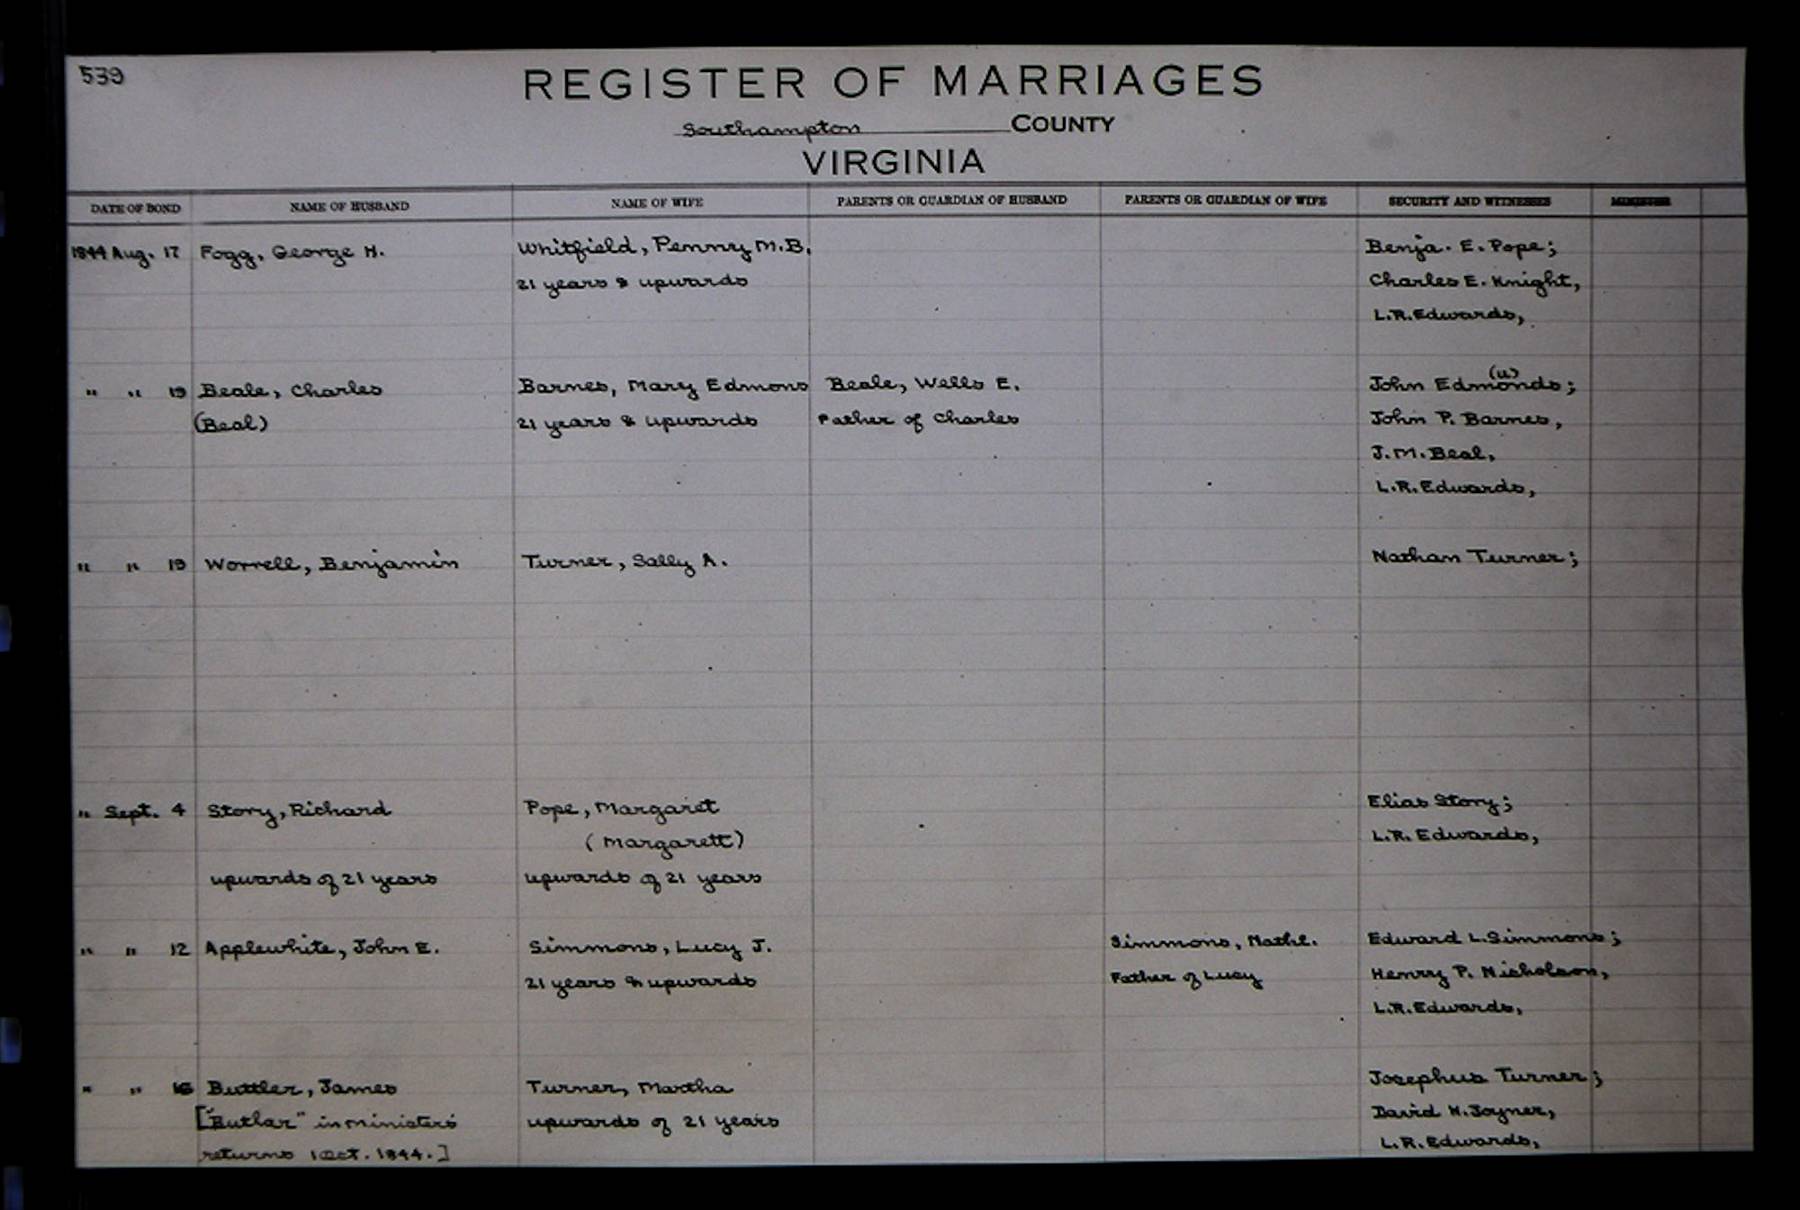 539
REGISTER OF MARRIAGES
Southampton COUNTY
VIRGINIA
DATE OF BOND NAME OF HUSBAND NAME OF WIFE PARENTS OR GUARDIAN OF HUSBAND PARENTS OR GUARDIAN OF WIFE SECURITY AND WITNESSES MINISTER
1844 Aug. 17 Fogg, George H. Whitfield, Penny M.B. Benja. E. Pope;
21 years & upwards Charles E. Knight,
L.R. Edwards,
" " 19 Beale, Charles Barnes, Mary Edmons Beale, Wells E. John Edmonds; (u)
(Beal) 21 years & upwards Father of Charles John P. Barnes,
J.M. Beal,
L.R. Edwards,
" " 19 Worrell, Benjamin Turner, Sally A. Nathan Turner;
" Sept. 4 Story, Richard Pope, Margaret Elias Story;
(Margarett) L.R. Edwards,
upwards of 21 years upwards of 21 years
" " 12 Applewhite, John E. Simmons, Lucy J. Simmons, Nathl. Edward L. Simmons;
21 years & upwards Father of Lucy Henry P. Nicholson,
L.R. Edwards,
" " 16 Buttler, James Turner, Martha Josephus Turner;
["Butlar" in minister's upwards of 21 years David H. Joyner,
returns 1 Oct. 1844.] L.R. Edwards,